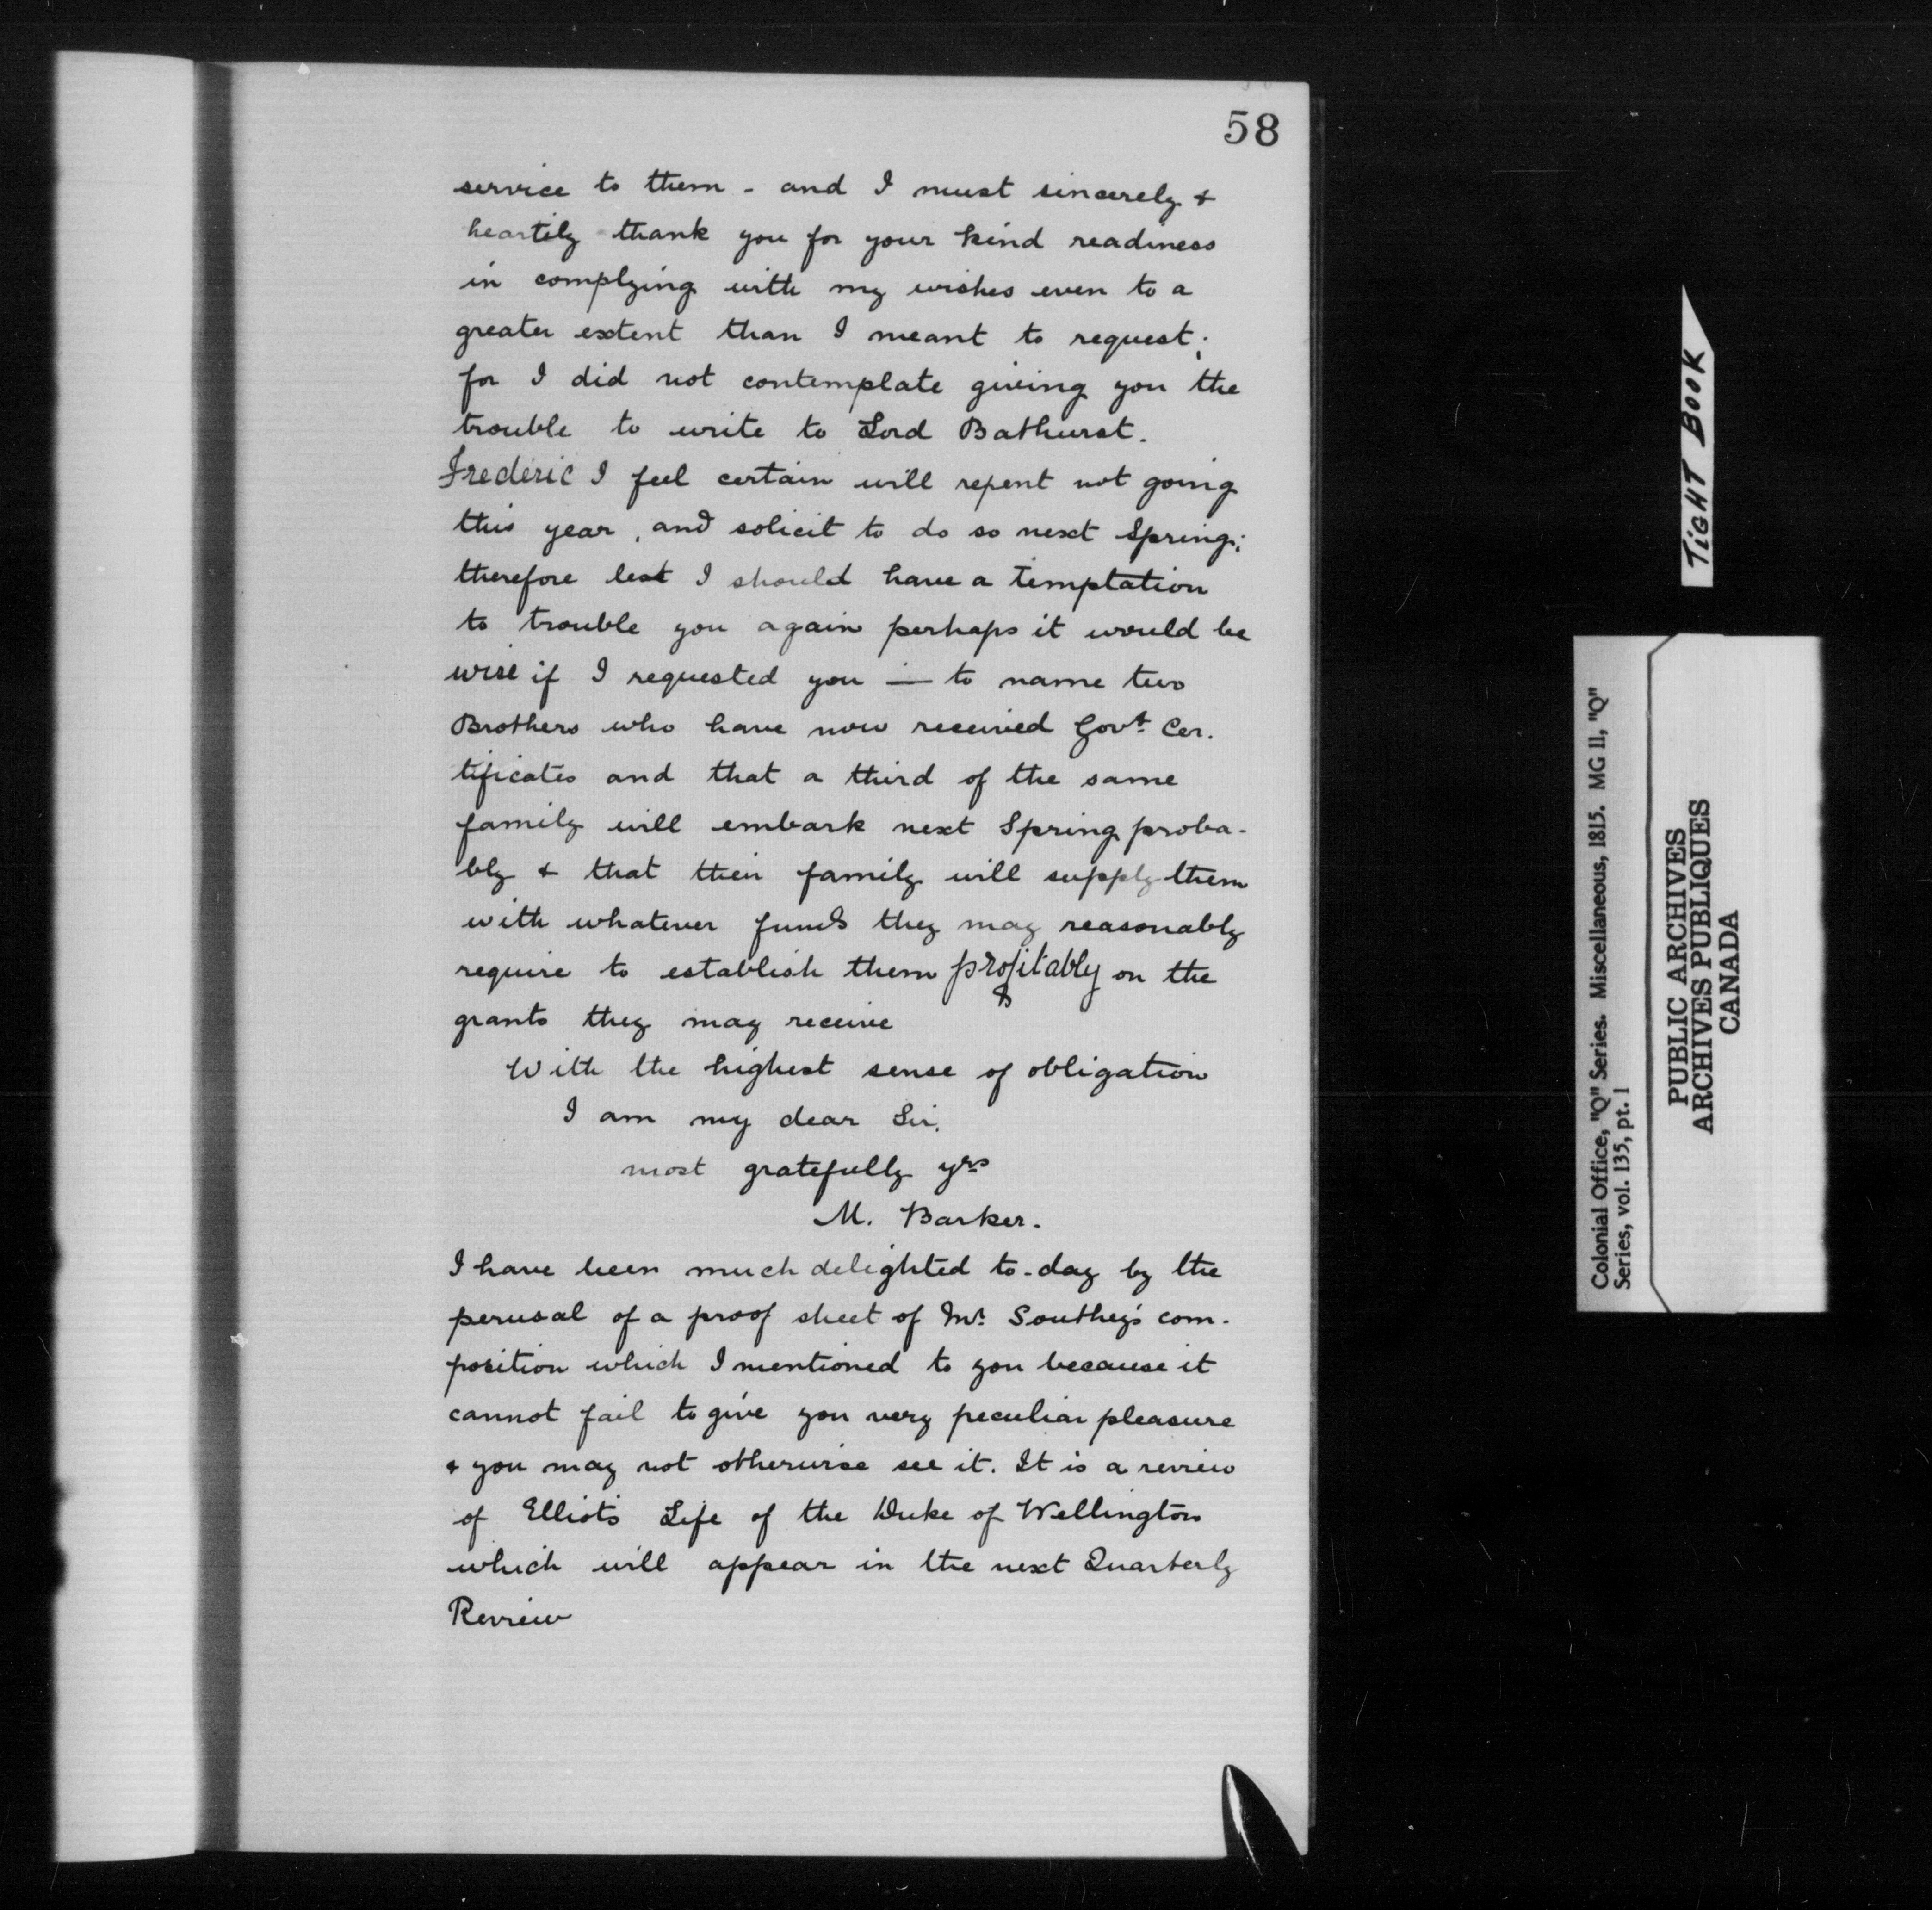 58
service to them - and I must sincerely &
heartily thank you for your kind readiness
in complying with my wishes even to a
greater extent than I meant to request;
for I did not contemplate giving you the
trouble to write to Lord Bathurst.
Frederic I feel certain will repent not going
this year, and solicit to do so next Spring;
therefore lest I should have a temptation
to trouble you again perhaps it would be
wise if I requested you — to name two
Brothers who have now received Govt. Cer-
tificates and that a third of the same
family will embark next Spring proba-
bly & that their family will supply them
with whatever funds they may reasonably
require to establish them profitably on the
grants they may receive
With the highest sense of obligation
I am my dear Sir,
most gratefully yrs
M. Barker.
I have been much delighted to-day by the
perusal of a proof sheet of Mr. Southey's com-
position which I mentioned to you because it
cannot fail to give you very peculiar pleasure
& you may not otherwise see it. It is a review
of Elliots Life of the Duke of Wellington
which will appear in the next Quarterly
Review
TIGHT BOOK
Colonial Office, "Q" Series. Miscellaneous, 1815. MG 11, "Q"
Series, vol. 135, pt. 1
PUBLIC ARCHIVES
ARCHIVES PUBLIQUES
CANADA